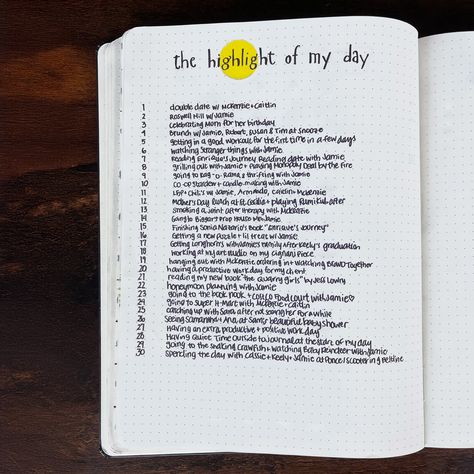 the highlight of my day
1 double date w/ McKenzie + Caitlin
2 Roswell Mill w/ Jamie
3 celebrating Mom for her birthday
4 Brunch w/ Jamie, Robert, Susan & Tim at Snooze
5 getting in a good workout for the first time in a few days
6 watching Stranger Things with Jamie
7 Reading Enrique's Journey Reading date with Jamie
8 grilling out with Jamie + Playing Monopoly Deal by the fire
9 going to Rag-O-Rama & thrifting with Jamie
10 co-op Stardew + candle-making with Jamie
11 + Chili's w/ Jamie, Armando, Caitlin + McKenzie
12 Mother's Day Lunch at St. Cecilia + playing Rumikub after
13 Smoking a Joint after therapy with McKenzie
14 Google Biggest Prop House w/ Jamie
15 Finishing Sonia Nazario's Book "Enrique's Journey"
16 Getting a new puzzle + lil treat w/ Jamie
17 Getting Longhorn's with Jamie's family after Keely's graduation
18 working at my art studio on my piece
19 hanging out with McKenzie ordering in + watching BRAVO Together
20 having a productive work day for my client
21 reading my new book "The Quarry Girls" by Jess Lowry
22 honeymoon planning with Jamie
23 going to the book nook + Food Court with Jamie♡
24 going to Super H-Mart with McKenzie + Caitlin
25 catching up with Sara after not seeing her for a while
26 Seeing Samantha + Ana at Sam's beautiful baby shower
27 Having an extra productive + positive work day
28 Having Quiet Time outside to journal at the start of my day
29 going to the Shaking Crawfish + watching Baby Reindeer with Jamie
30 Spending the day with Cassie + Keely + Jamie at Ponce & scootering Beltline